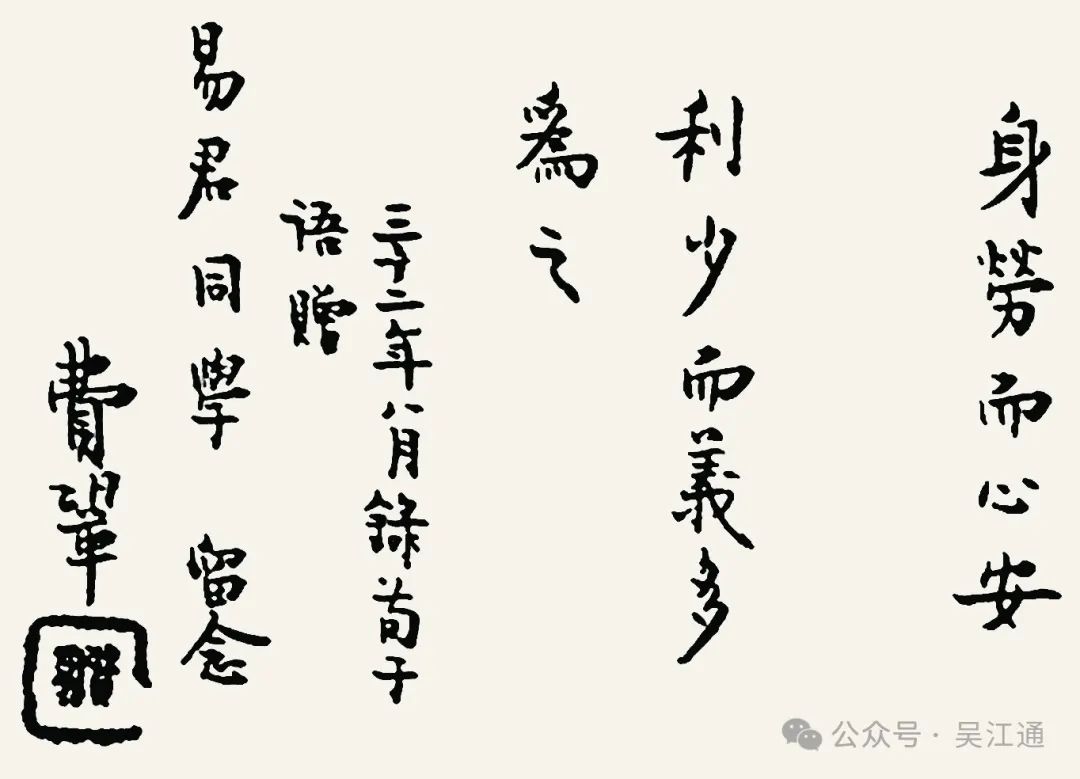 身勞而心安
利少而義多
爲之
三十二年八月錄荀子
語贈
易君同學 留念
費鞏
公众号·吴江通